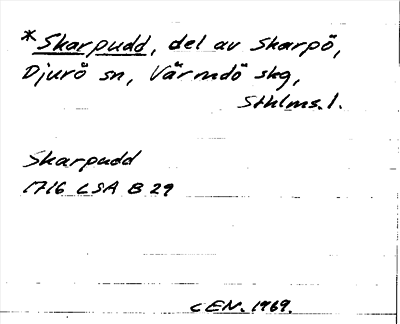 *Skarpudd, del av Skarpö,
Djurö sn, Värmdö skg,
Sthlms. l.
Skarpudd
1716 LSA B 29
CEN. 1969.